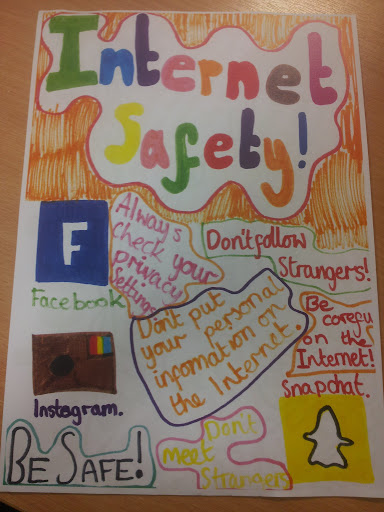 Internet
Safety!
F
Facebook
Always
check your
privacy
settings
Don't follow
Strangers!
Don't put
your personal
information on
the Internet.
Be
carefu
on the
Internet!
Instagram.
Snapchat.
BE SAFE!
Don't
meet
Strangers